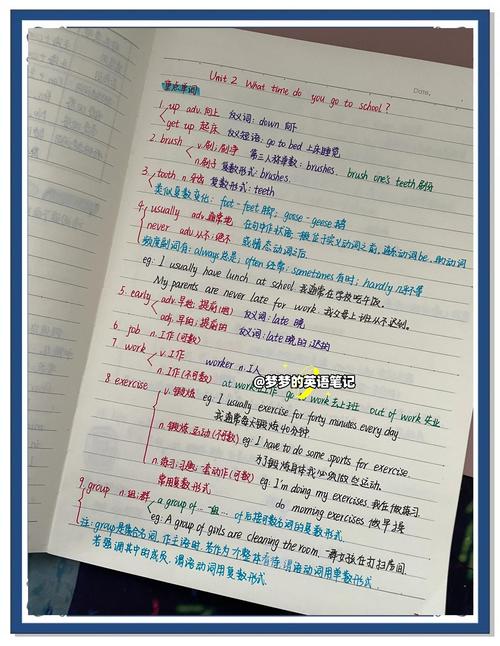 Unit 2 What time do you go to school?
Date.
重点单词
1. up adv.向上 反义词: down 向下
get up 起床 反义短语: go to bed 上床睡觉
2. brush v.刷;刷净 第三人称单数: brushes. brush one's teeth 刷牙
n.刷子 复数形式: brushes.
3. tooth n.牙齿 复数形式: teeth
类似复数变化: foot-feet脚; goose-geese鹅
4. usually adv.通常地 在句中作状语,一般位于实义动词之前,
never adv.从不;绝不 或情态动词后
频度副词有: always总是; often经常; sometimes有时; hardly几乎不
eg: I usually have lunch at school 我通常在学校吃午饭.
My parents are never late for work. 我父母上班从不迟到.
5. early adv.早地;提前(地) 反义词: late 晚
adj.早的;提前的 反义词: late 晚的;迟的
6. job n.工作(可数)
7. work v.工作 worker n.工人
n.工作(不可数) at work在工作 go to work去上班 out of work 失业
@梦梦的英语笔记
8 exercise v.锻炼 eg I usually exercise for forty minutes every day
我通常每天锻炼40分钟
n.锻炼;运动(不可数) eg: I have to do some sports for exercise
为了锻炼身体我必须做些运动.
n.练习;习题;套动作(可数) eg: I'm doing my exercises. 我在做练习.
常用复数形式 do morning exercises 做早操
9. group n.组;群
a group of 一组… of后接可数名词的复数形式
eg: A group of girls are cleaning the room. 一群女孩在打扫房间.
注: group是集合名词,作主语时,若作为一个整体看待,谓语动词用单数形式
若强调其中的成员,谓语动词用复数形式